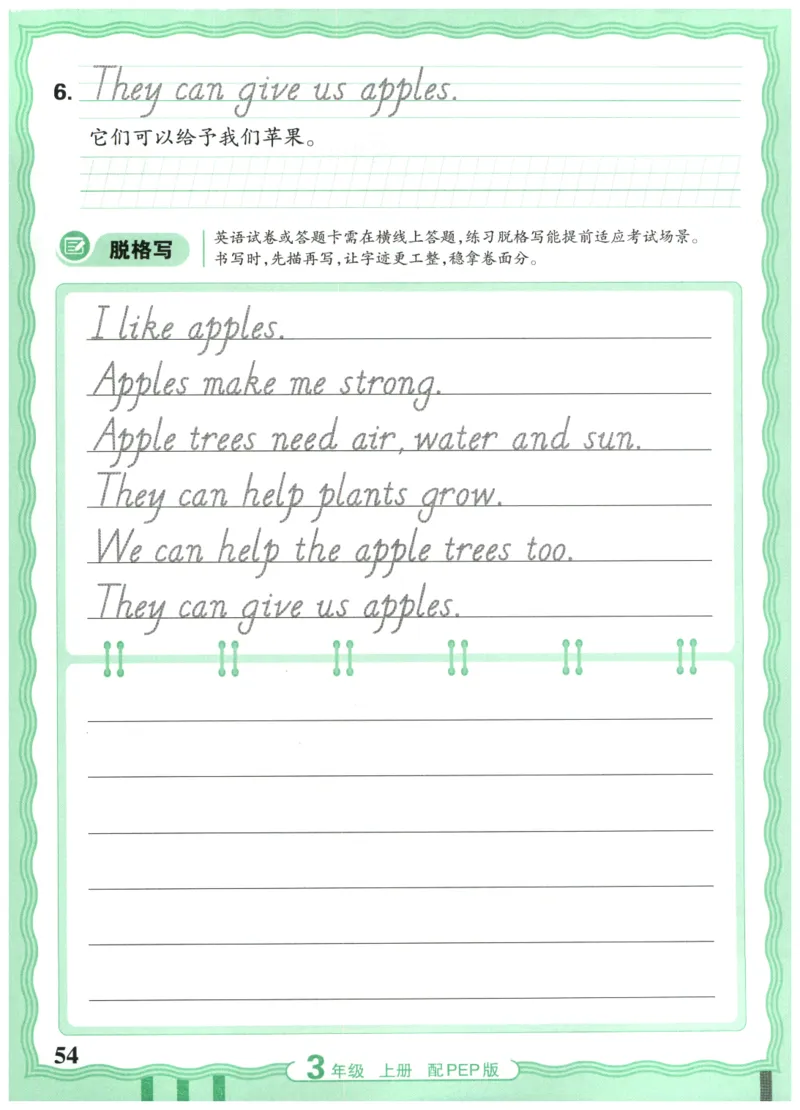 6. They can give us apples.
它们可以给予我们苹果。
脱格写
英语试卷或答题卡需在横线上答题,练习脱格写能提前适应考试场景。
书写时,先描再写,让字迹更工整,稳拿卷面分。
I like apples.
Apples make me strong.
Apple trees need air, water and sun.
They can help plants grow.
We can help the apple trees too.
They can give us apples.
54
3年级 上册 配PEP版